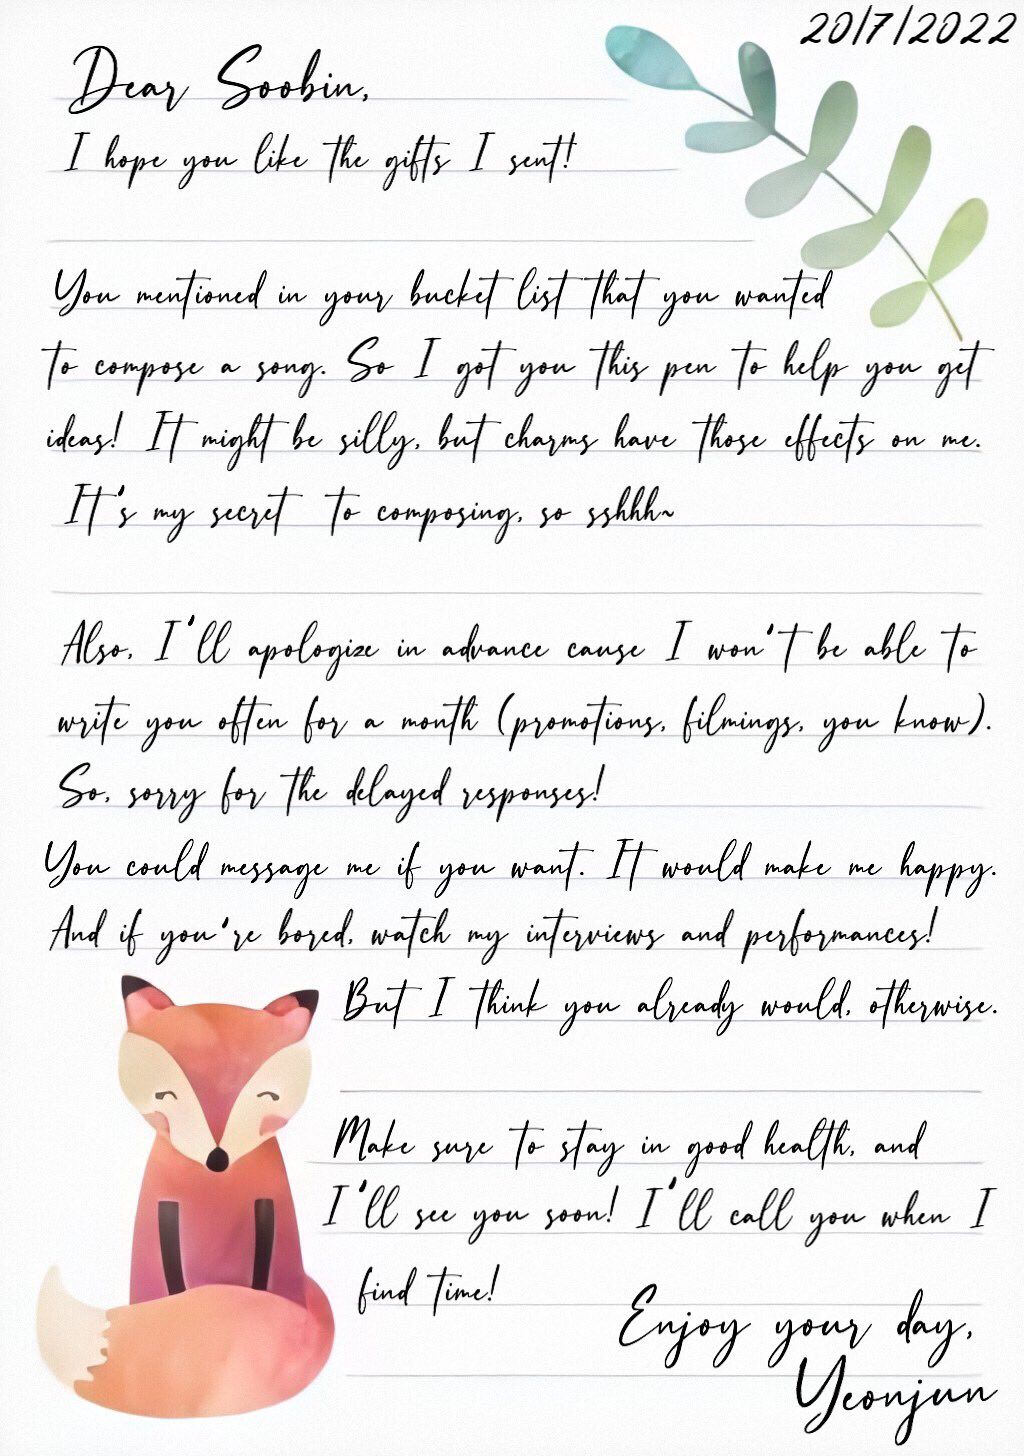 20/7/2022
Dear Soobin,
I hope you like the gifts I sent!
You mentioned in your bucket list that you wanted
to compose a song. So I got you this pen to help you get
ideas! It might be silly, but charms have those effects on me.
It's my secret to composing, so sshhh~
Also, I'll apologize in advance cause I won't be able to
write you often for a month (promotions, filmings, you know).
So, sorry for the delayed responses!
You could message me if you want. It would make me happy.
And if you're bored, watch my interviews and performances!
But I think you already would, otherwise.
Make sure to stay in good health, and
I'll see you soon! I'll call you when I
find time!
Enjoy your day,
Yeonjun